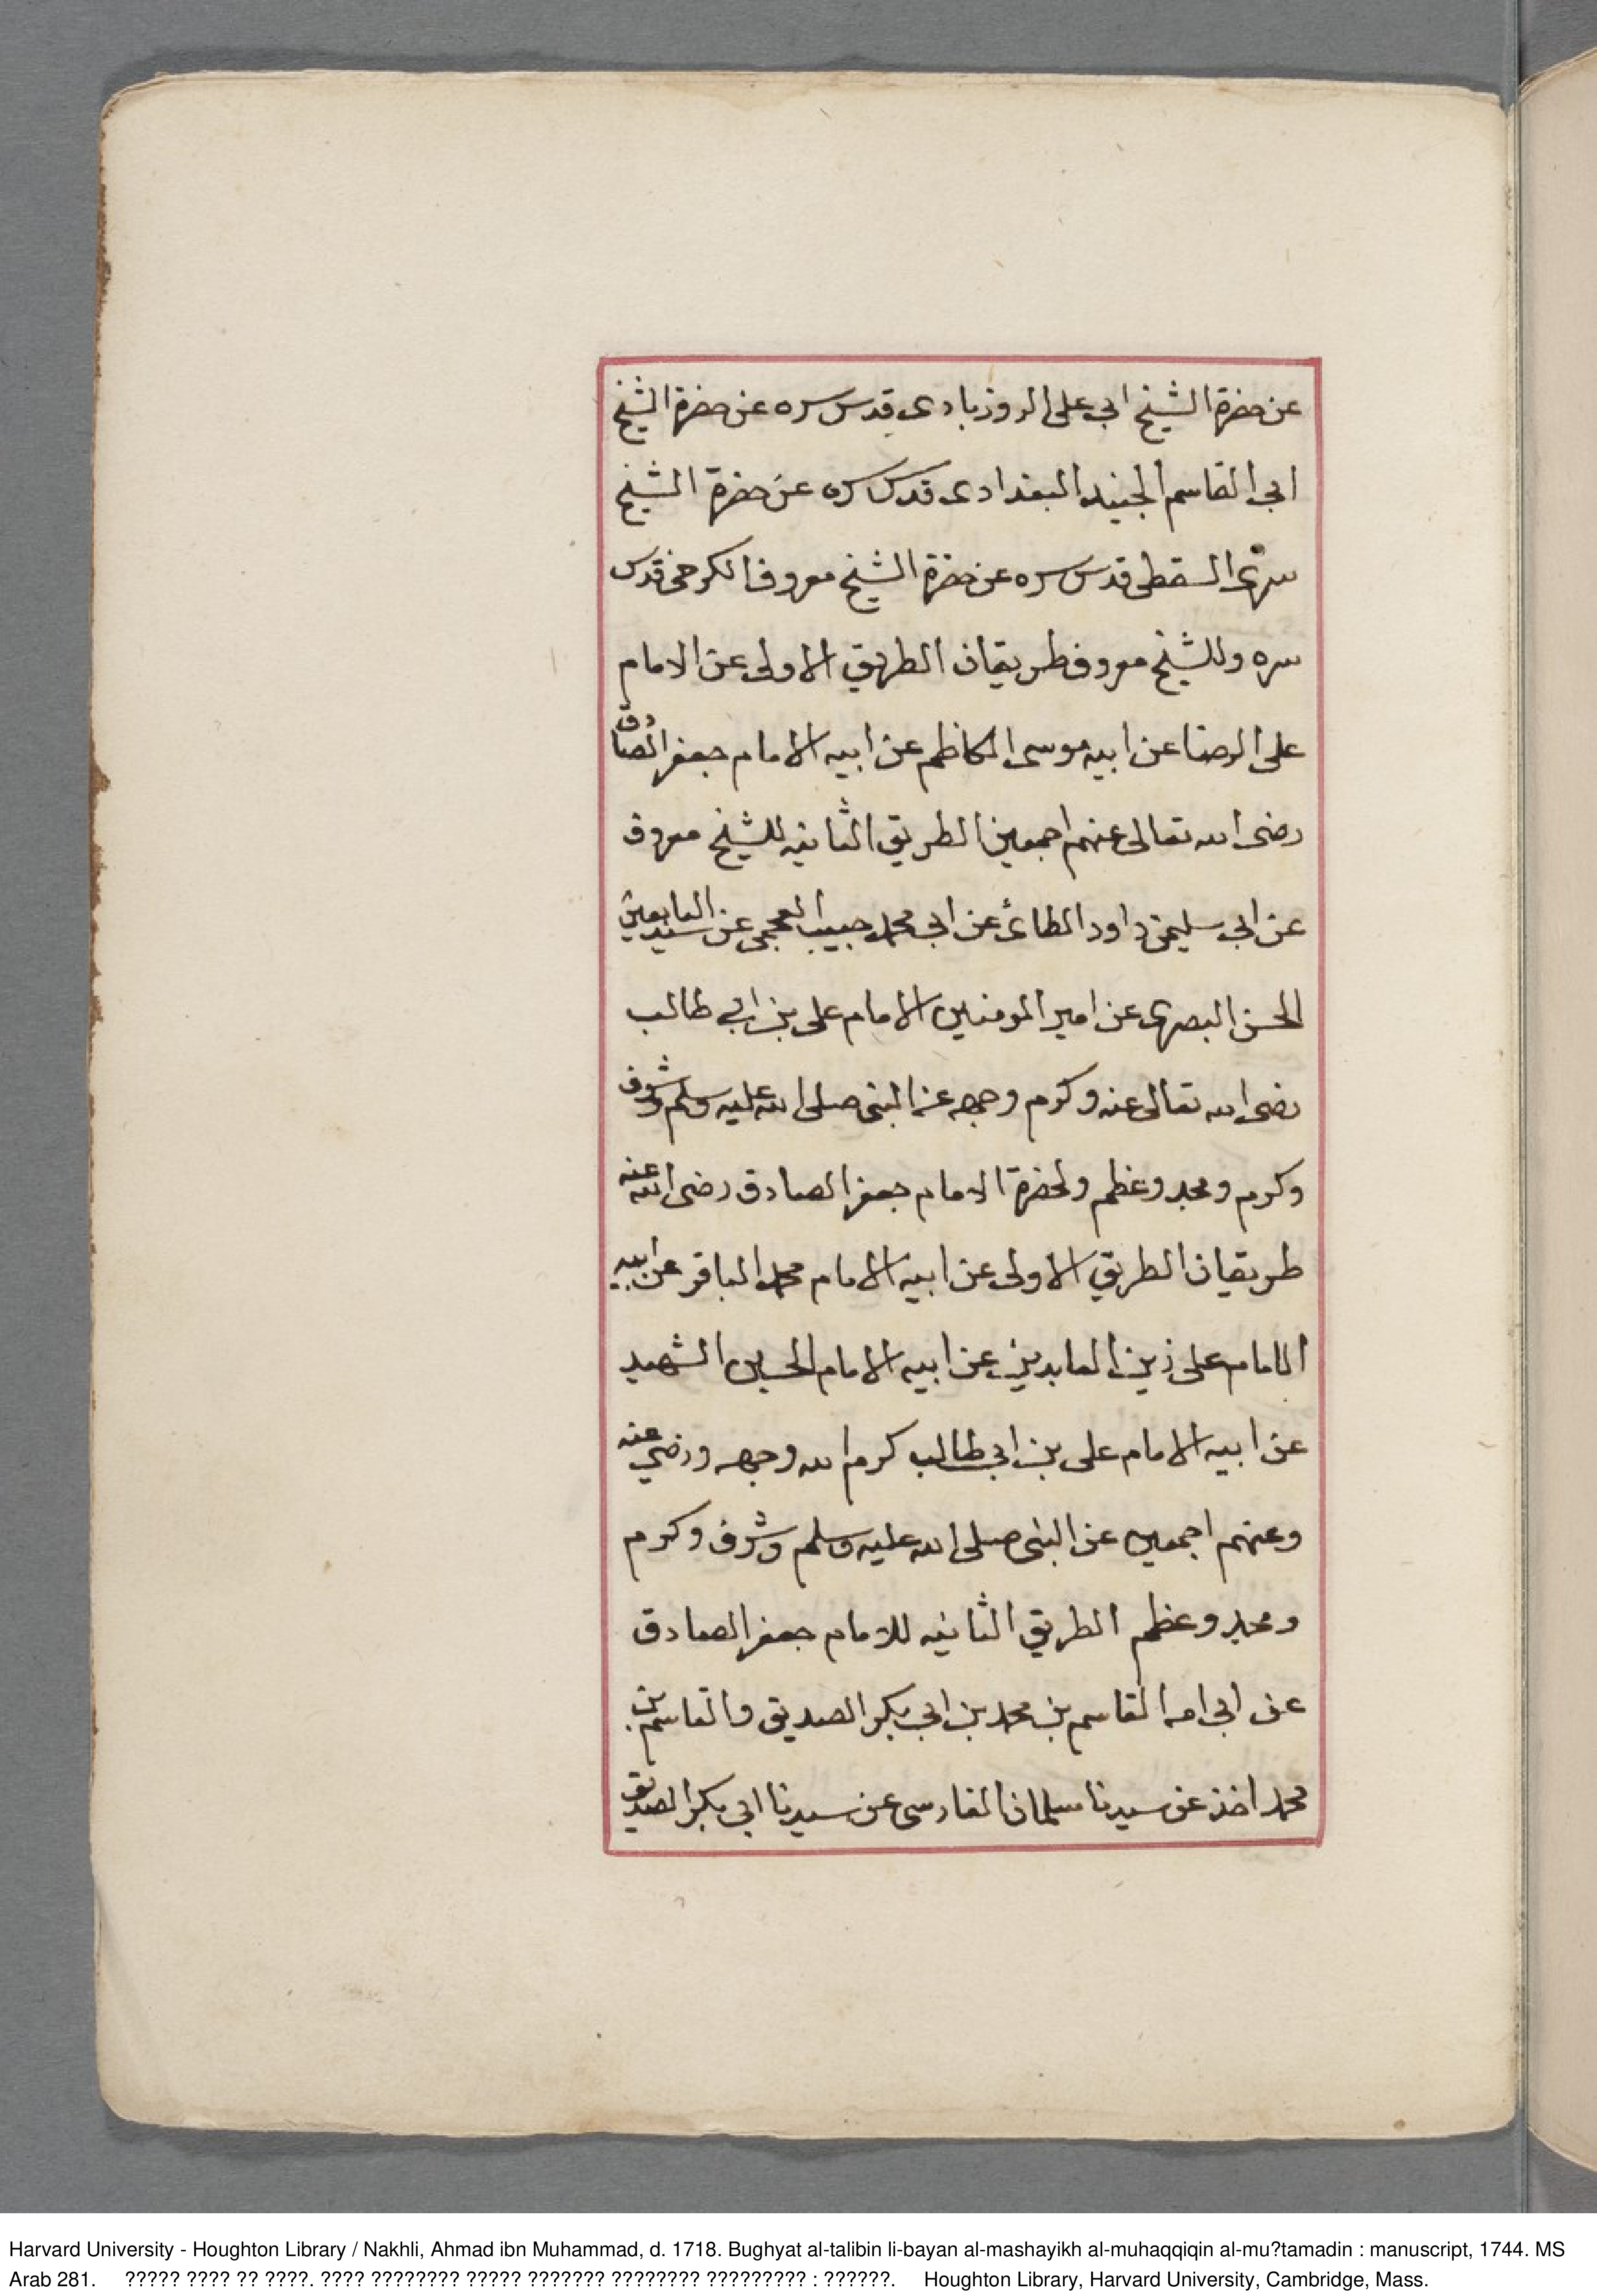 عن حضرة الشيخ ابي على الروزبادى قدس سره عن حضرة الشيخ
ابي القاسم الجنيد البغدادى قدس سره عن حضرة الشيخ
سرى السقطى قدس سره عن حضرة الشيخ معروف الكرخى قدس
سره وللشيخ معروف طريقان الطريق الاولى عن الامام
على الرضا عن ابيه موسى الكاظم عن ابيه الامام جعفر الصادق
رضى الله تعالى عنهم اجمعين الطريق الثانيه للشيخ معروف
عن ابي سليمن داود الطائى عن ابي محمد حبيب العجمى عن سيد التابعين
الحسن البصرى عن امير المومنين الامام على بن ابي طالب
رضى الله تعالى عنه وكرم وجهه عن النبى صلى الله عليه وسلم وشرف
وكرم ومجد وعظم ولحضرة الامام جعفر الصادق رضى الله عنه
طريقان الطريق الاولى عن ابيه الامام محمد الباقر عن ابيه
الامام على زين العابدين عن ابيه الامام الحسين الشهيد
عن ابيه الامام على بن ابي طالب كرم الله وجهه ورضي عنه
وعنهم اجمعين عن النبى صلى الله عليه وسلم وشرف وكرم
ومجد وعظم الطريق الثانيه للامام جعفر الصادق
عن ابي امه القاسم بن محمد بن ابي بكر الصديق والقاسم بن
محمد اخذ عن سيدنا سلمان الفارسى عن سيدنا ابي بكر الصديق
Harvard University - Houghton Library / Nakhli, Ahmad ibn Muhammad, d. 1718. Bughyat al-talibin li-bayan al-mashayikh al-muhaqqiqin al-mu?tamadin : manuscript, 1744. MS
Arab 281. ????? ???? ?? ????. ???? ???????? ????? ??????? ???????? ????????? : ??????. Houghton Library, Harvard University, Cambridge, Mass.